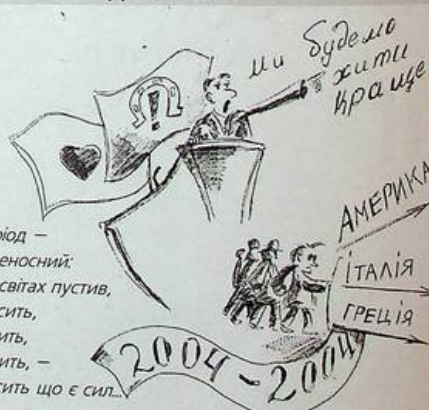 Ми будемо
жити
краще
АМЕРИКА
ІТАЛІЯ
ГРЕЦІЯ
іод –
еносний:
світах пустив,
сить,
ить,
ить, –
сить що є сил...
2004-2004